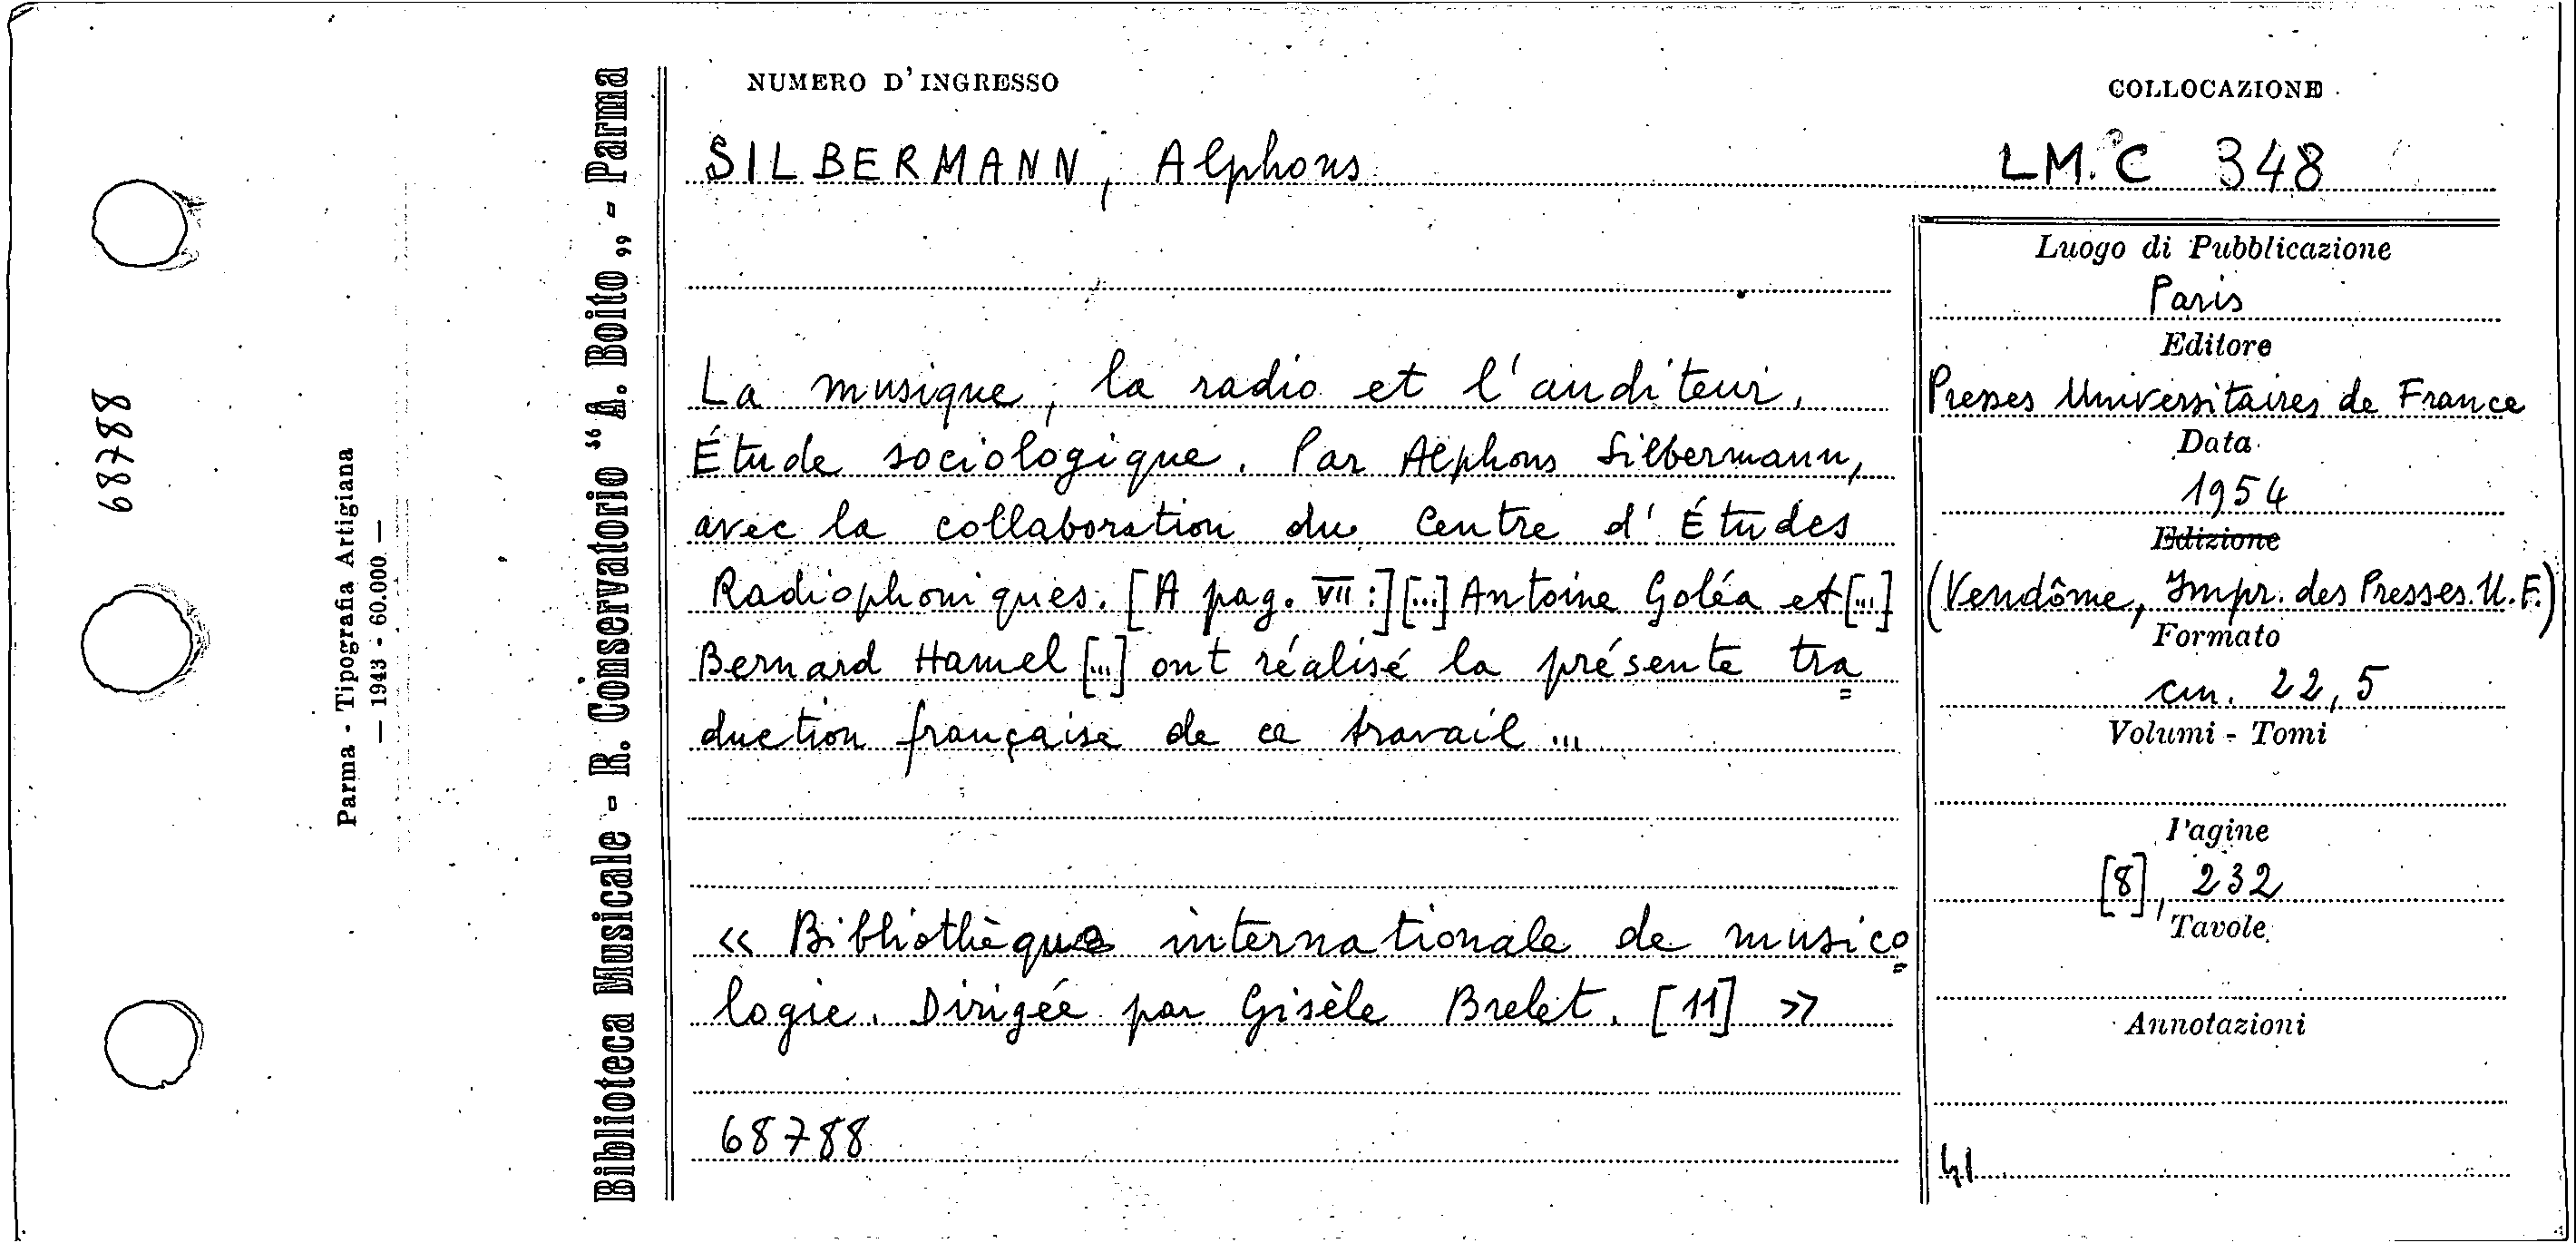 NUMERO D'INGRESSO
COLLOCAZIONE
SILBERMANN, Alphons
LM. C 348
La musique, la radio et l'auditeur.
Étude sociologique. Par Alphons Silbermann,
avec la collaboration du Centre d'Études
Radiophoniques. [A pag. VII:] [...] Antoine Goléa et [...]
Bernard Hamel [...] ont réalisé la présente tra=
duction française de ce travail ...
« Bibliothèque internationale de musico=
logie. Dirigée par Gisèle Brelet. [11] »
68788
Luogo di Pubblicazione
Paris
Editore
Presses Universitaires de France
Data
1954
Edizione
(Vendôme, Impr. des Presses U.F.)
Formato
cm. 22,5
Volumi - Tomi
Pagine
[8], 232
Tavole
Annotazioni
Biblioteca Musicale - R. Conservatorio "A. Boito" - Parma
Parma - Tipografia Artigiana
— 1943 - 60.000 —
68788